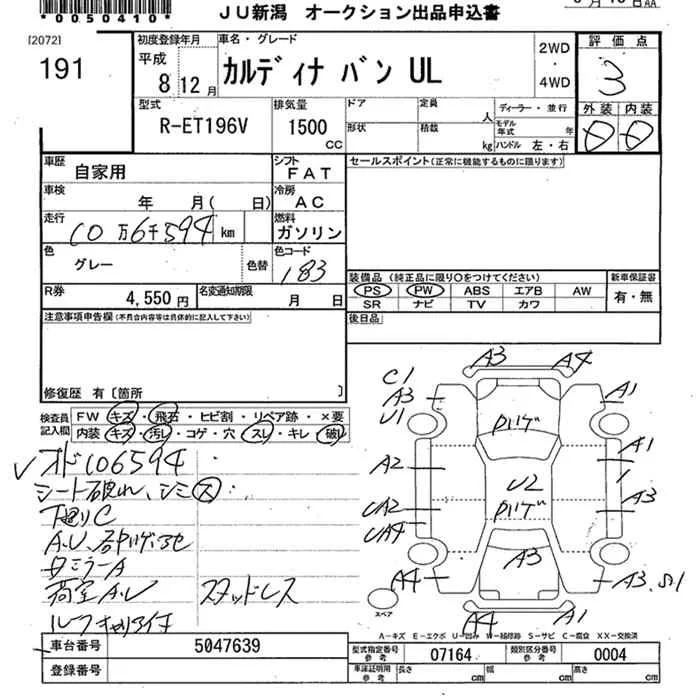 *0050410*
JU新潟 オークション出品申込書
[2072]
191
初度登録年月
平成
8 12 月
車名・グレード
カルディナ バン UL
2WD
・
4WD
評価点
3
型式
R-ET196V
排気量
1500
CC
ドア
定員
人
形状
積載
kg
ディーラー・並行
モデル年式
年
ハンドル 左・右
外装 内装
D D
車歴
自家用
シフト
FAT
セールスポイント(正常に機能するものに限ります)
車検
年 月( 日)
冷房
AC
走行
10万6千594 km
燃料
ガソリン
色
グレー
色替
色コード
183
装備品(純正品に限り○をつけてください)
PS PW ABS エアB AW
SR ナビ TV カワ
新車保証書
有・無
R券
4,550 円
名変通知期限
月 日
後日品
注意事項申告欄(不具合内容等は具体的に記入して下さい)
修復歴 有〔箇所 〕
検査員
記入欄
FW キズ・飛石・ヒビ割・リペア跡・×要
内装 キズ・汚レ・コゲ・穴・スレ・キレ・破レ
オド106594
シート破れ、シミス
下廻りC
荷室A.U スタッドレス
ルーフキャリアイキ
A3 A4
C1
A3
U1
A1
Pハゲ
A2
A1
U2
Pハゲ
UA2
UA4
A3
A3
A4
A3.S1
スペア
A4 A1
A－キズ E－エクボ U－凹み W－補修跡 S－サビ C－腐食 XX－交換済
車台番号
5047639
型式指定番号
参考
07164
類別区分番号
参考
0004
登録番号
車庫証明用
参考
長さ cm
幅 cm
高さ cm